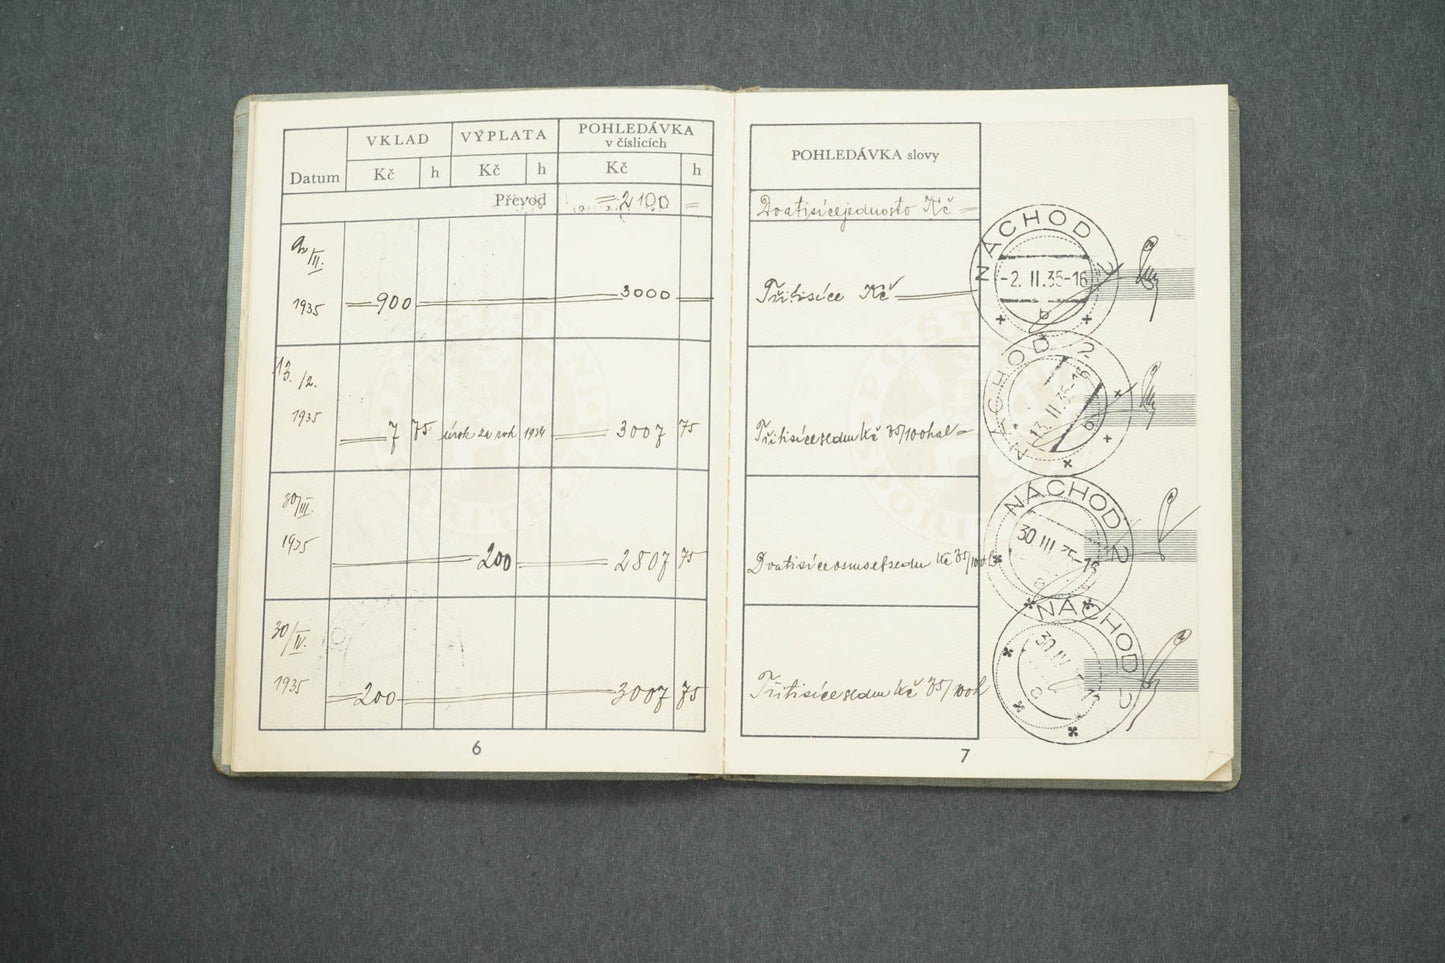 VKLAD VÝPLATA POHLEDÁVKA
v číslicích
Datum Kč h Kč h Kč h
Převod =2100 =
2/II. 1935 — 900 3000 —
13./2. 1935 7 75 úrok za rok 1934 3007 75
30/III. 1935 200 2807 75
30/IV. 1935 200 3007 75
6
POHLEDÁVKA slovy
Dvatisícejednosto Kč =
Třitisíce Kč
Třitisícesedm Kč 75/100 hal =
Dvatisíceosmsetsedm Kč 75/100 h
Třitisícesedm Kč 75/100 h
NÁCHOD 2
-2. II. 35-16
b
NÁCHOD 2
13. II. 35-16
b
NÁCHOD 2
30 III 35-13
NÁCHOD 2
30 IV
7
POŠTOVNÍ SPOŘITELNA
POŠTOVNÍ SPOŘITELNA